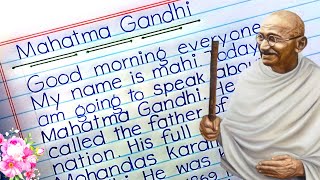 Mahatma Gandhi
Good morning everyone
My name is mahi. Today
am going to speak abou
Mahatma Gandhi He
called the father of
nation. His full
Mohandas karam
He was
1869